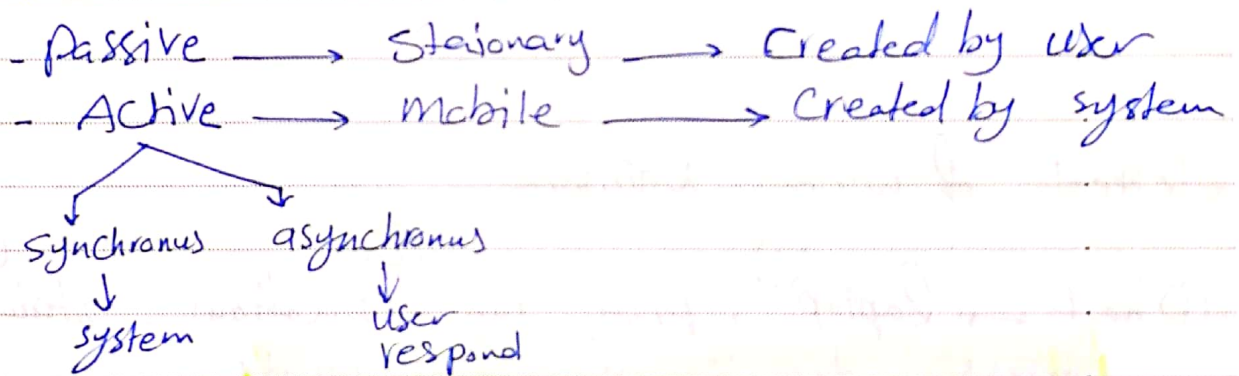 - Passive → Staionary → Created by user
- Active → Mobile → Created by system
synchronus asynchronus
↓ ↓
system user
respond